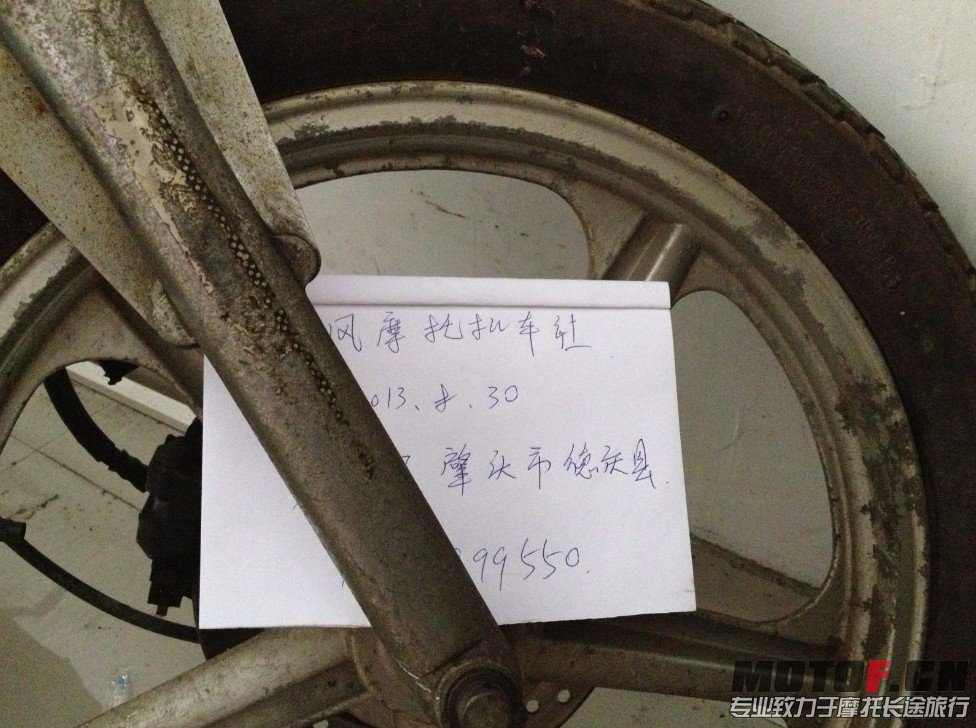 风摩托扣车社
013.8.30
肇庆市德庆县.
99550.
MOTOF.CN
专业致力于摩托长途旅行